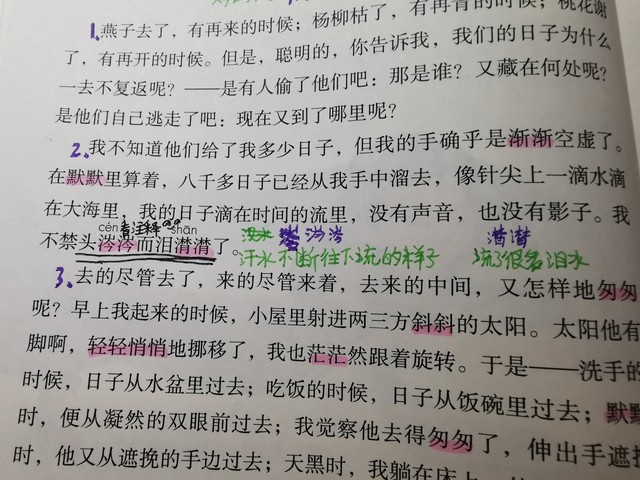 1、燕子去了，有再来的时候；杨柳枯了，有再青的时候；桃花谢
了，有再开的时候。但是，聪明的，你告诉我，我们的日子为什么
一去不复返呢？——是有人偷了他们吧：那是谁？又藏在何处呢？
是他们自己逃走了吧：现在又到了哪里呢？
2、我不知道他们给了我多少日子，但我的手确乎是渐渐空虚了。
在默默里算着，八千多日子已经从我手中溜去，像针尖上一滴水滴
在大海里，我的日子滴在时间的流里，没有声音，也没有影子。我
cén 看注释 shān
不禁头涔涔而泪潸潸了。 涔涔 潸潸
汗水不断往下流的样子 流了很多泪水
3、去的尽管去了，来的尽管来着，去来的中间，又怎样地匆匆
呢？早上我起来的时候，小屋里射进两三方斜斜的太阳。太阳他有
脚啊，轻轻悄悄地挪移了，我也茫茫然跟着旋转。于是——洗手的
时候，日子从水盆里过去；吃饭的时候，日子从饭碗里过去；默默
时，便从凝然的双眼前过去；我觉察他去得匆匆了，伸出手遮挽
时，他又从遮挽的手边过去；天黑时，我躺在床上，